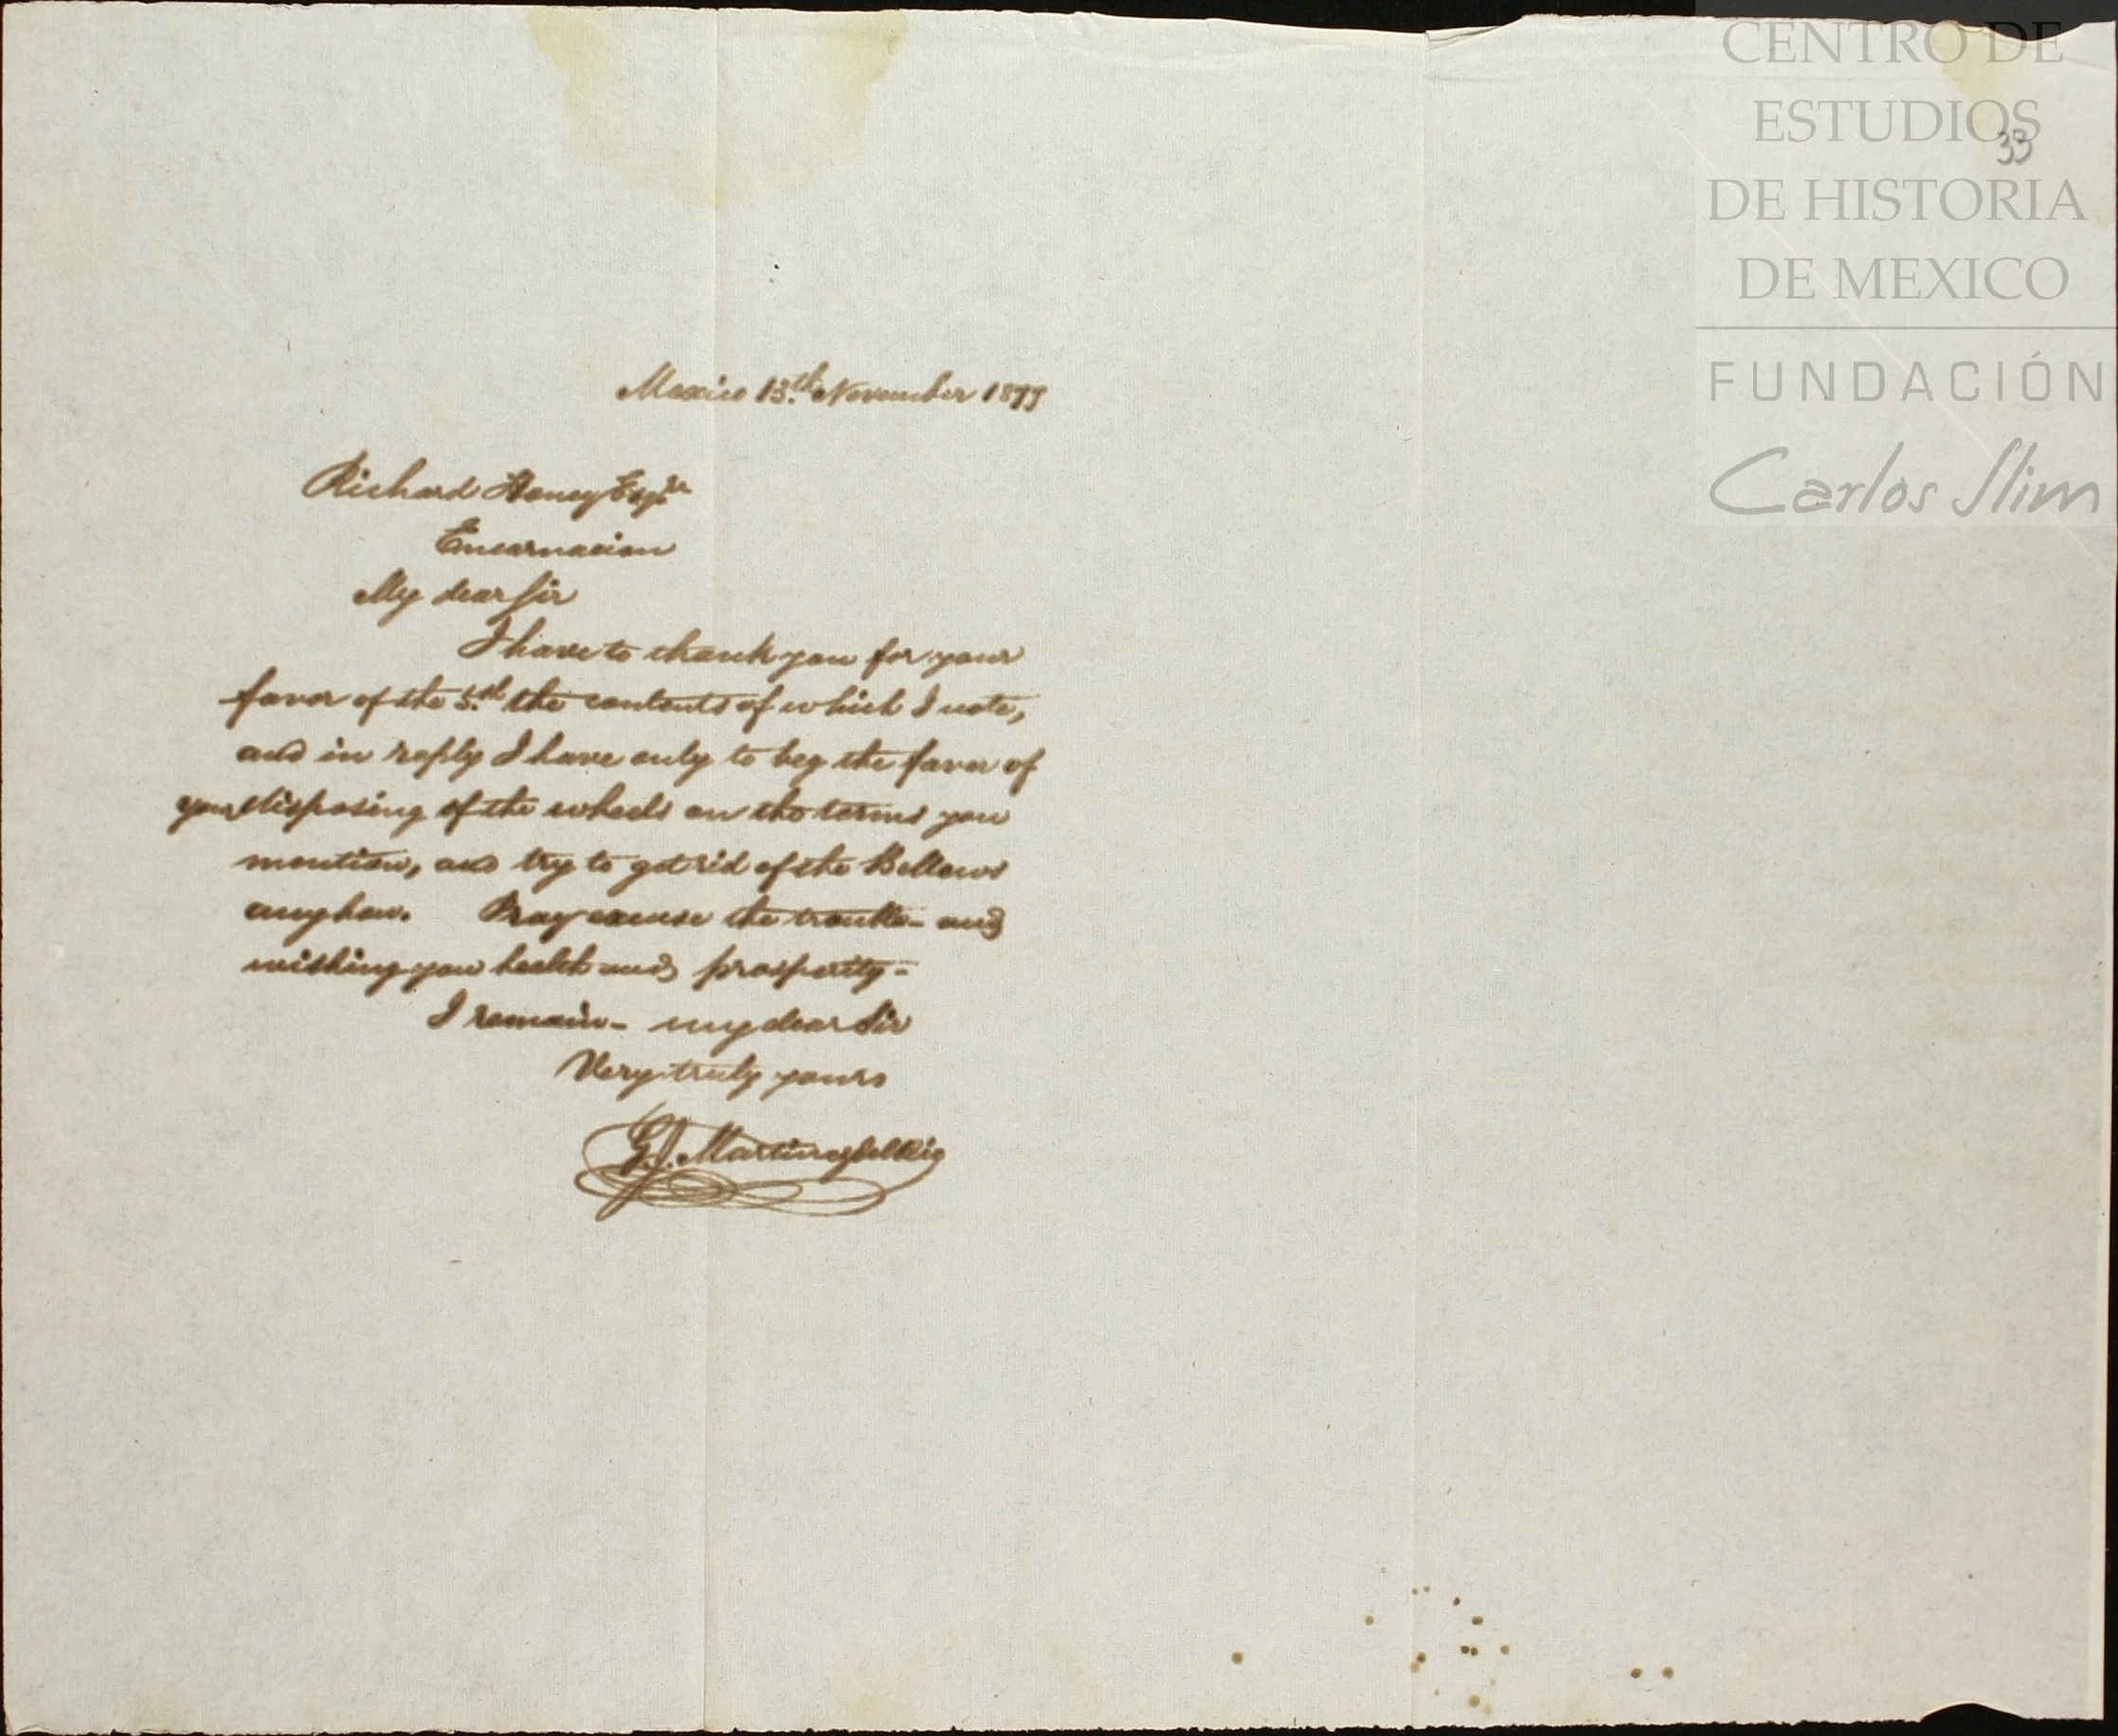 CENTRO DE
ESTUDIOS
DE HISTORIA
DE MEXICO
FUNDACIÓN
Carlos Slim
33
Mexico 13.th November 1877
Richard Honey Esqr
Encarnacion
My dear Sir
I have to thank you for your
favor of the 5.th the contents of which I note,
and in reply I have only to beg the favor of
your disposing of the wheels on the terms you
mention, and try to get rid of the Bellows
anyhow. Pray excuse the trouble - and
wishing you health and prosperity -
I remain - my dear Sir
Very truly yours